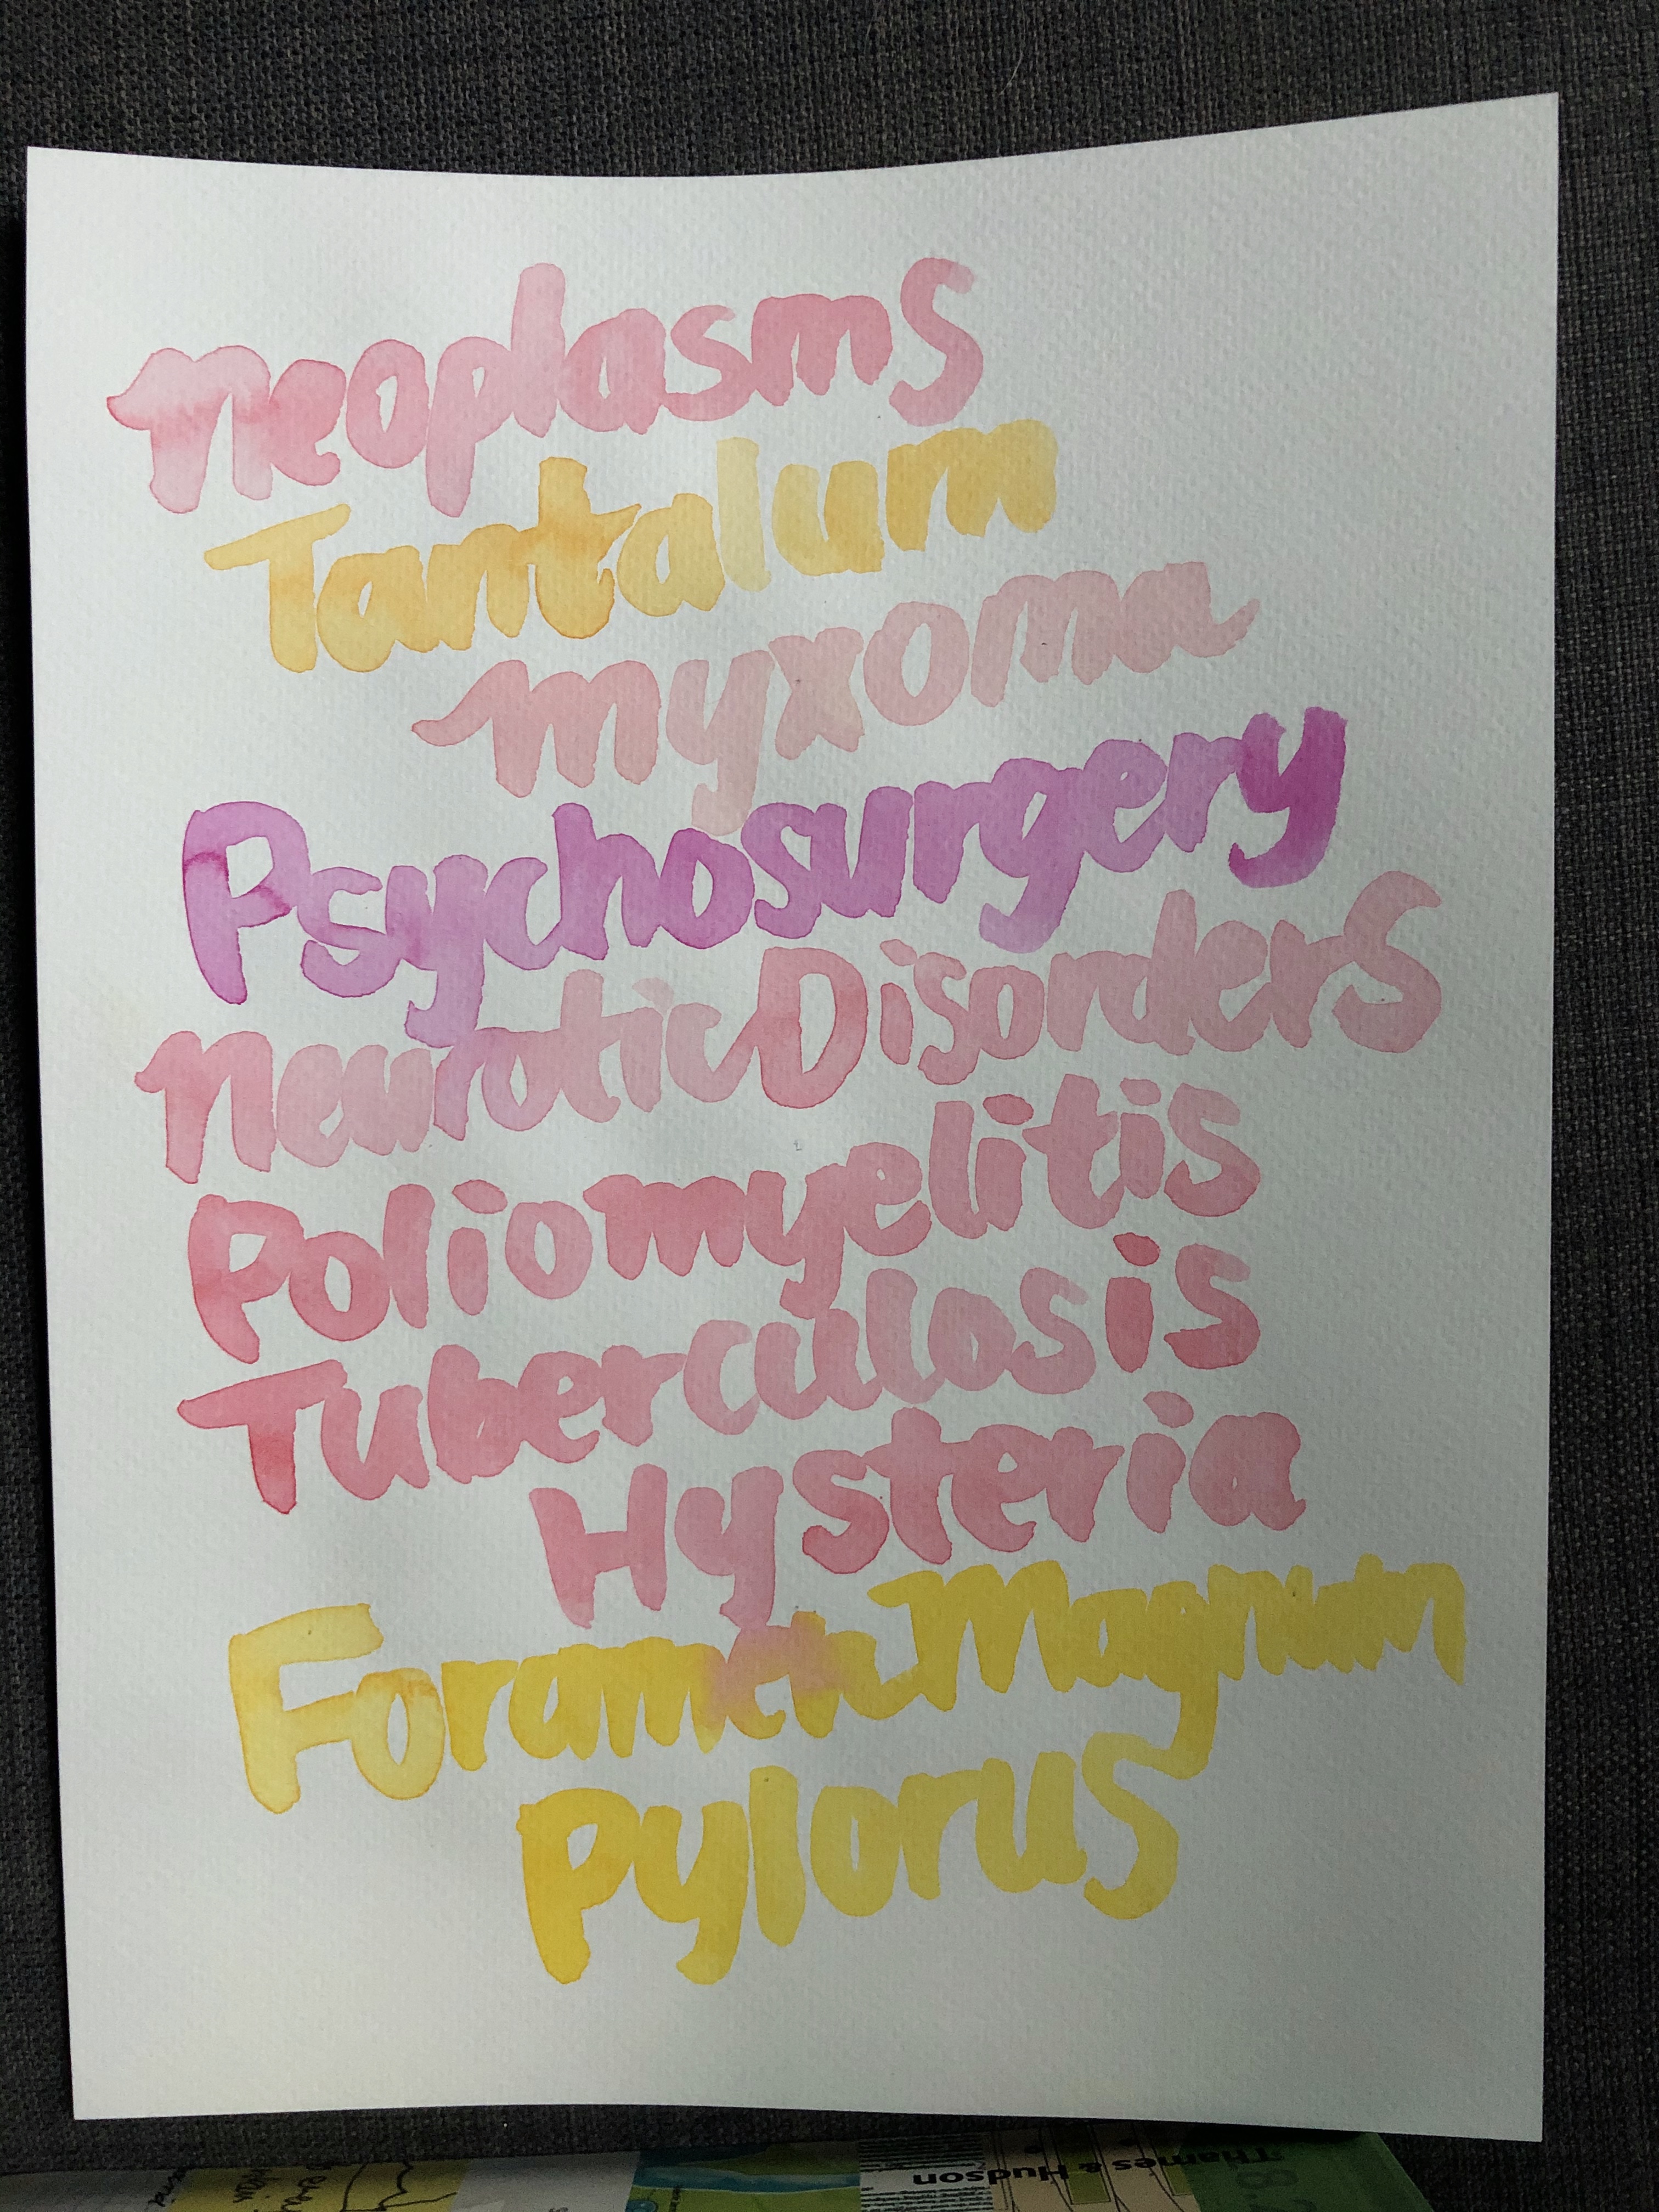 neoplasms
Tantalum
myxoma
Psychosurgery
Neurotic Disorders
Poliomyelitis
Tuberculosis
Hysteria
Foramen Magnum
Pylorus
Thames & Hudson